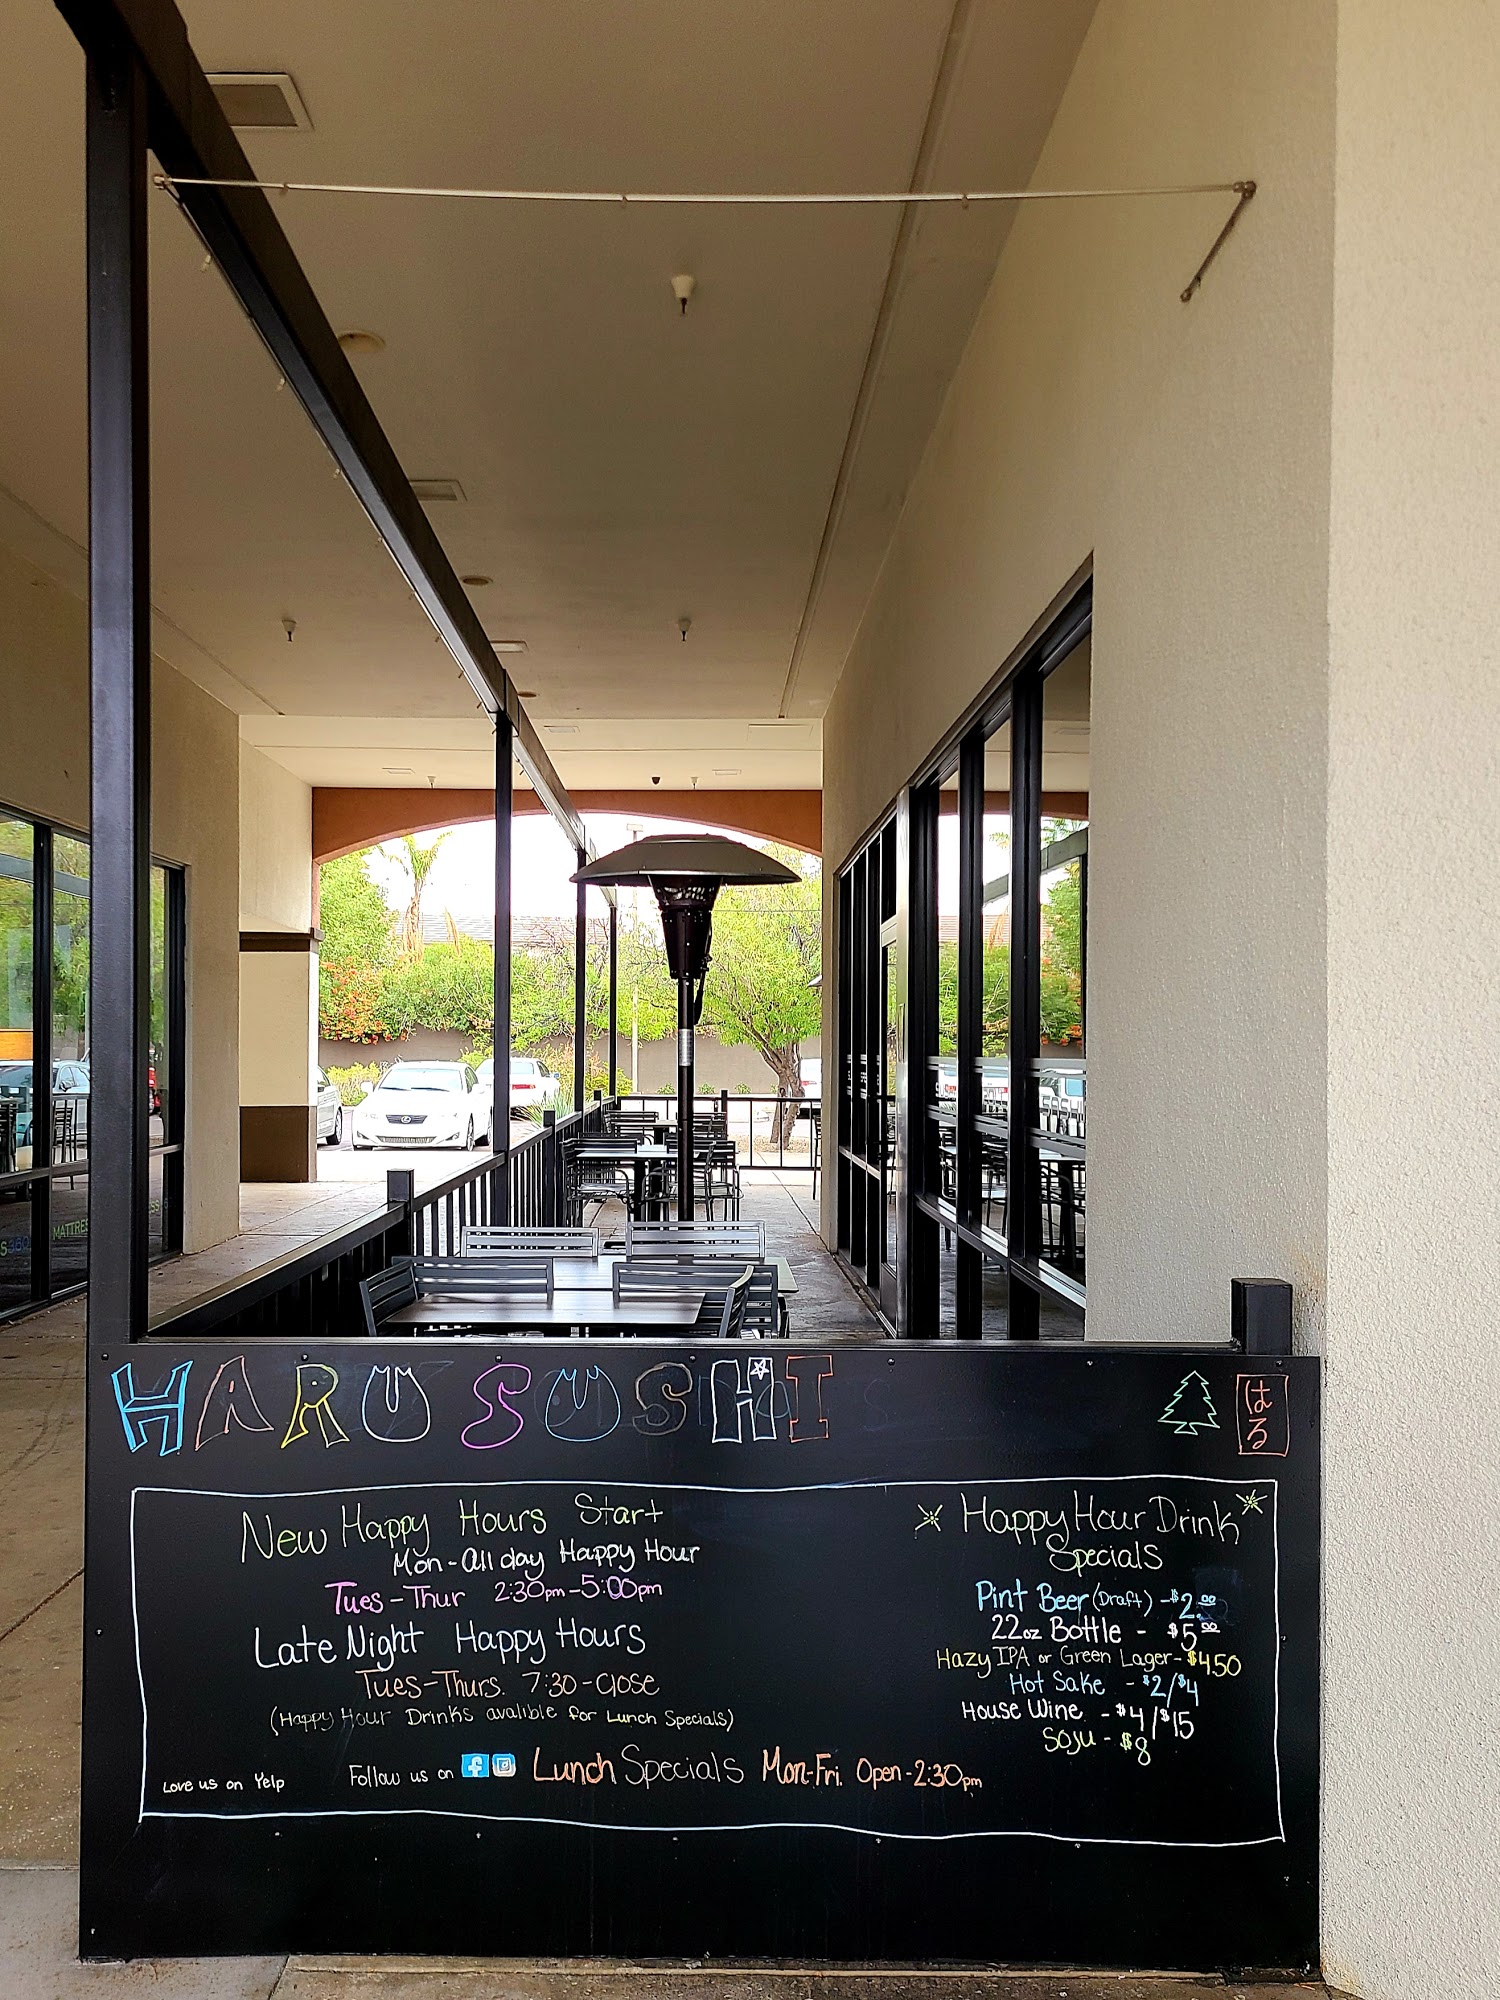 HARU SUSHI
はる
New Happy Hours Start
Mon - All day Happy Hour
Tues - Thur 2:30pm - 5:00pm
Late Night Happy Hours
Tues - Thurs. 7:30 - Close
(Happy Hour Drinks avalible for Lunch Specials)
Love us on Yelp
Follow us on
Lunch Specials Mon-Fri. Open - 2:30pm
Happy Hour Drink
Specials
Pint Beer (Draft) - $2.00
22oz Bottle - $5.00
Hazy IPA or Green Lager - $4.50
Hot Sake - $2/$4
House Wine - $4/$15
Soju - $8
MATTRES